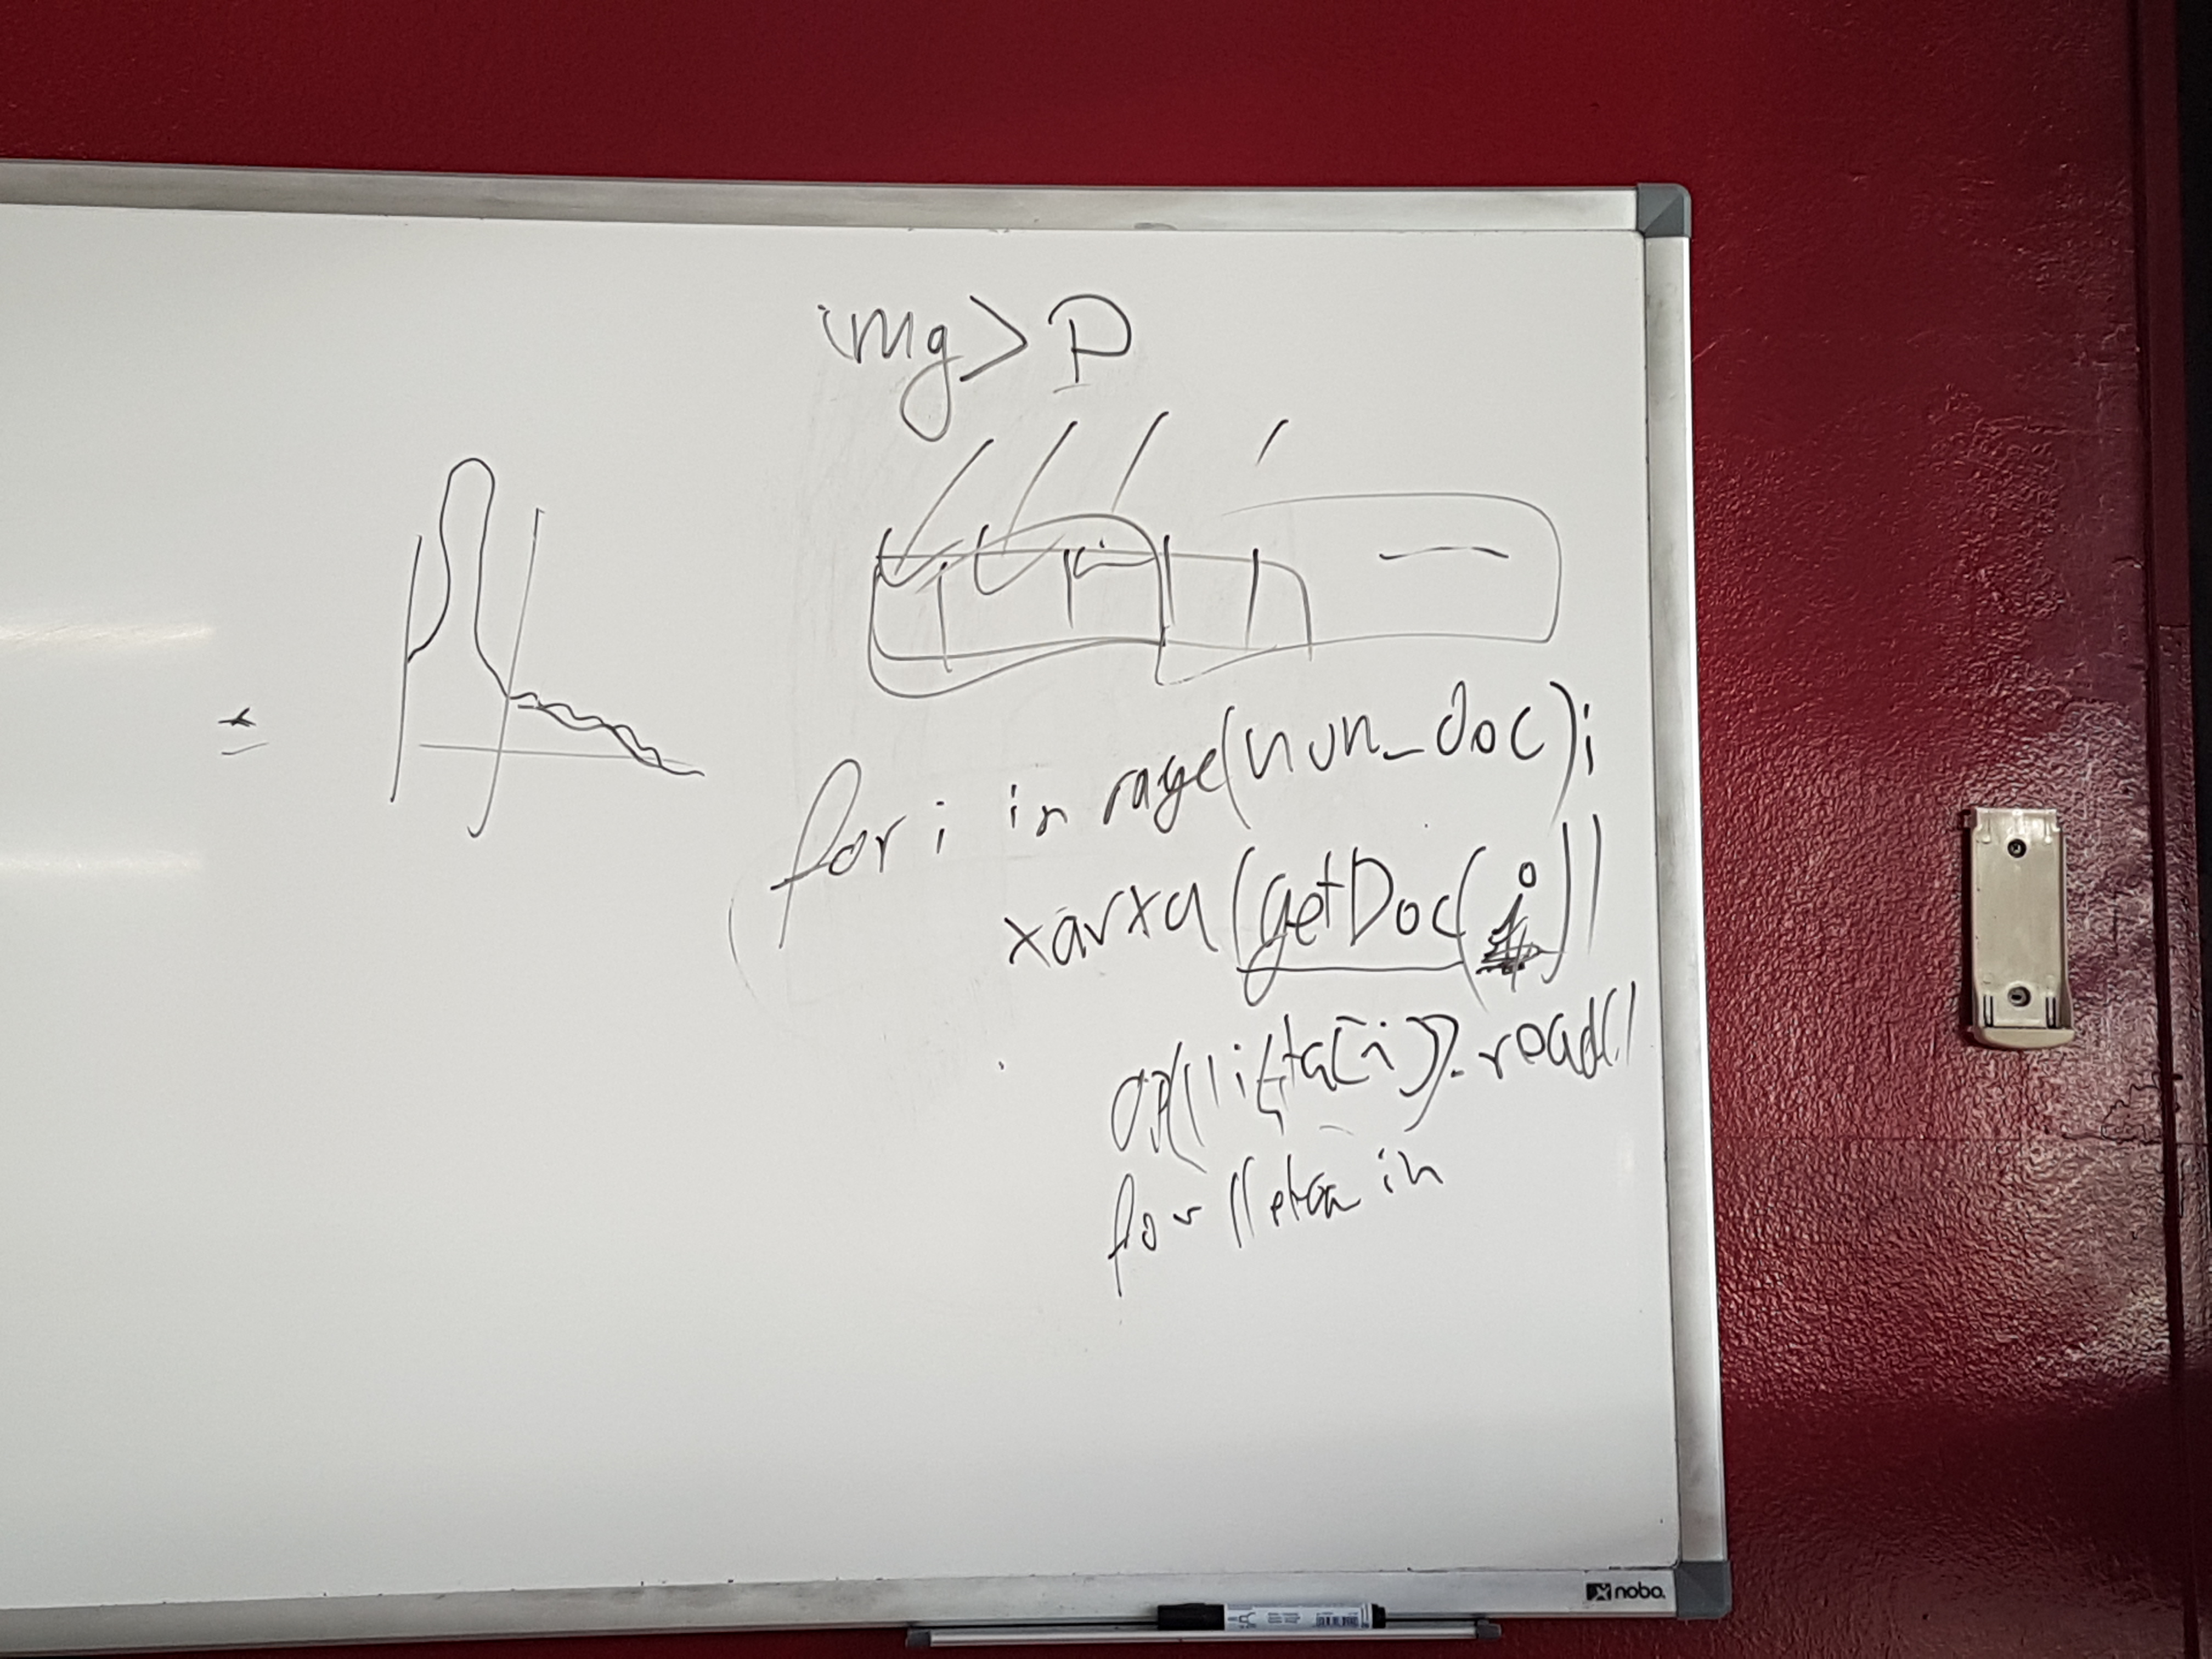 img > P
for i in range(num_doc):
xarxa(getDoc(i))
(lista[i]).read()
for lletra in
nobo.